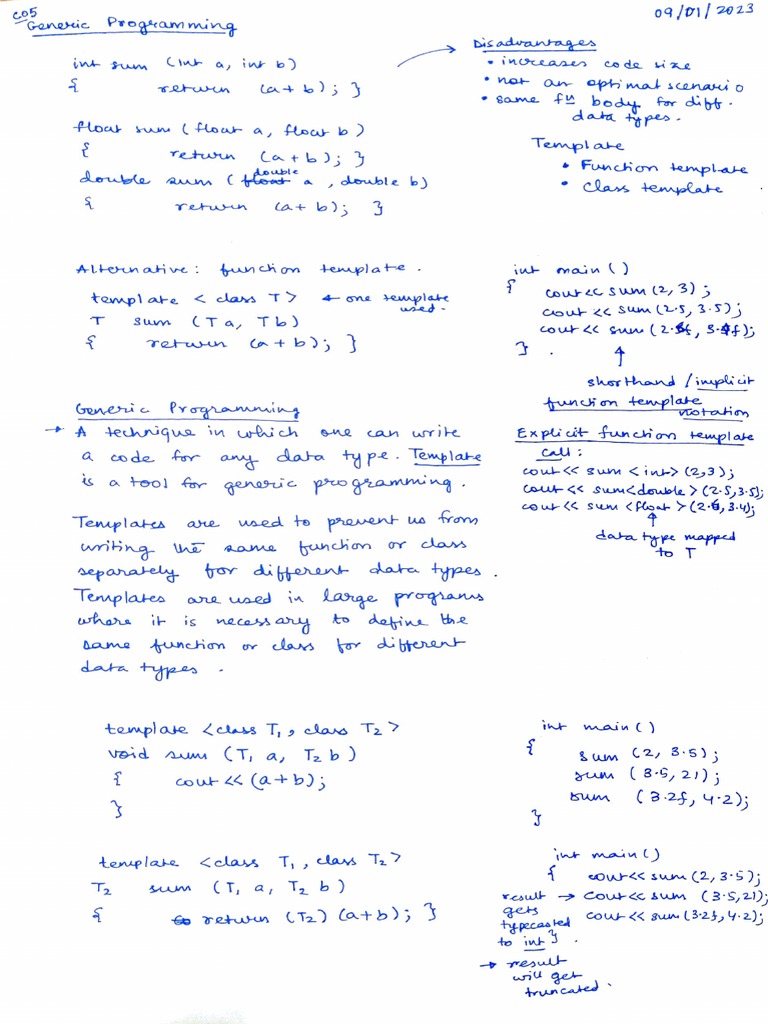 CO5
Generic Programming
09/01/2023
int sum (int a, int b)
{ return (a+b); }
float sum (float a, float b)
{ return (a+b); }
double sum (double a, double b)
{ return (a+b); }
Disadvantages
• increases code size
• not an optimal scenario
• same fn body for diff.
data types.
Template
• Function template
• Class template
Alternative: function template.
template < class T> ← one template
used.
T sum (T a, T b)
{ return (a+b); }
int main()
{ cout<< sum(2, 3);
cout << sum(2.5, 3.5);
cout << sum(2.f, 3.4f);
} .
shorthand / implicit
function template
notation
Generic Programming
→ A technique in which one can write
a code for any data type. Template
is a tool for generic programming.
Templates are used to prevent us from
writing the same function or class
separately for different data types.
Templates are used in large programs
where it is necessary to define the
same function or class for different
data types.
Explicit function template
call:
cout << sum <int> (2,3);
cout << sum<double>(2.5,3.5);
cout << sum <float>(2.6, 3.4);
data type mapped
to T
template <class T1, class T2>
void sum (T1 a, T2 b)
{ cout << (a+b);
}
int main()
{ sum (2, 3.5);
sum (3.5, 21);
sum (3.2f, 4.2);
}
template <class T1, class T2>
T2 sum (T1 a, T2 b)
{ return (T2) (a+b); }
int main()
{ cout<< sum(2, 3.5);
result → cout<< sum (3.5,21);
gets cout << sum(3.2f, 4.2);
typecasted
to int } .
→ result
will get
truncated.